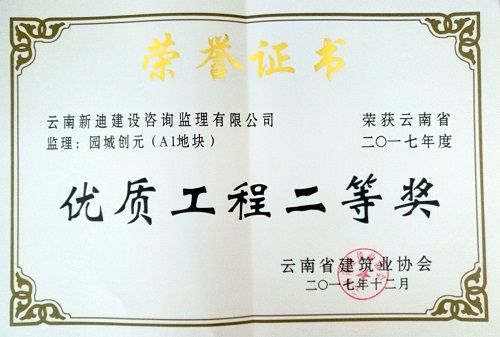 荣誉证书
云南新迪建设咨询监理有限公司 荣获云南省
监理：园城创元（A1地块） 二〇一七年度
优质工程二等奖
云南省建筑业协会
二〇一七年十二月